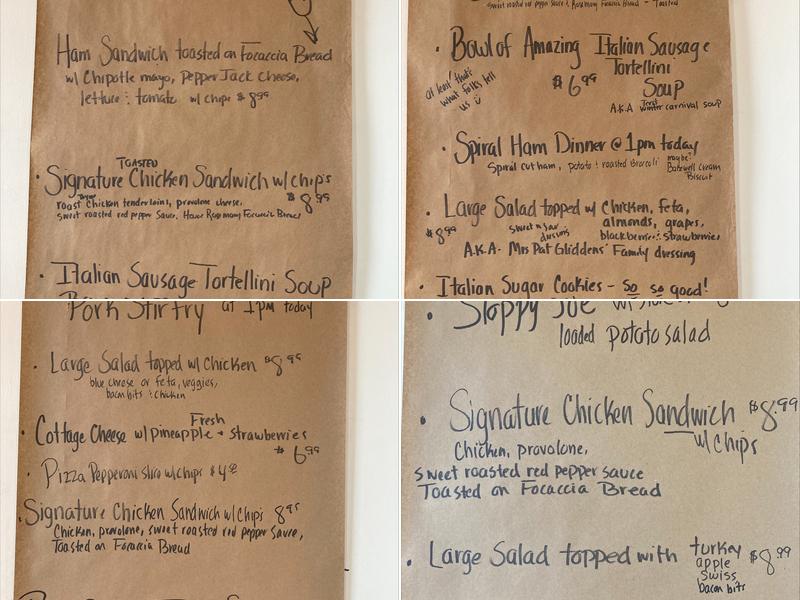 Ham Sandwich toasted on Focaccia Bread
w/ Chipotle mayo, Pepper Jack Cheese,
lettuce & tomato w/ chips $8.99
TOASTED
• Signature Chicken Sandwich w/ chips
roast Chicken tenderloins, provolone cheese, $8.99
sweet roasted red pepper Sauce, House Rosemary Focaccia Bread
• Italian Sausage Tortellini Soup
sweet roasted red pepper Sauce, Rosemary Focaccia Bread - Toasted
• Bowl of Amazing Italian Sausage
Tortellini
Soup
$6.99
at least that's
what folks tell
us
A.K.A winter carnival soup
• Spiral Ham Dinner @ 1pm today
Spiral cut ham, potato & roasted Broccoli
maybe?
Bakewell Cream
Biscuit
• Large Salad topped w/ Chicken, feta,
almonds, grapes,
blackberries & strawberries
$8.99
sweet n sour
dressing
A.K.A. Mrs Pat Gliddens' Family dressing
• Italian Sugar Cookies - So so good!
Pork Stir fry at 1pm today
• Large Salad topped w/ Chicken $8.95
blue cheese or feta, veggies,
bacon bits & chicken
Fresh
• Cottage Cheese w/ pineapple + strawberries
$6.99
• Pizza Pepperoni Slice w/ chips
• Signature Chicken Sandwich w/ chips 8.95
Chicken, provolone, sweet roasted red pepper Sauce,
Toasted on Focaccia Bread
• Sloppy Joe w/
loaded potato salad
• Signature Chicken Sandwich $8.99
w/ chips
Chicken, provolone,
sweet roasted red pepper sauce
Toasted on Focaccia Bread
• Large Salad topped with turkey $8.99
apple
swiss
bacon bits